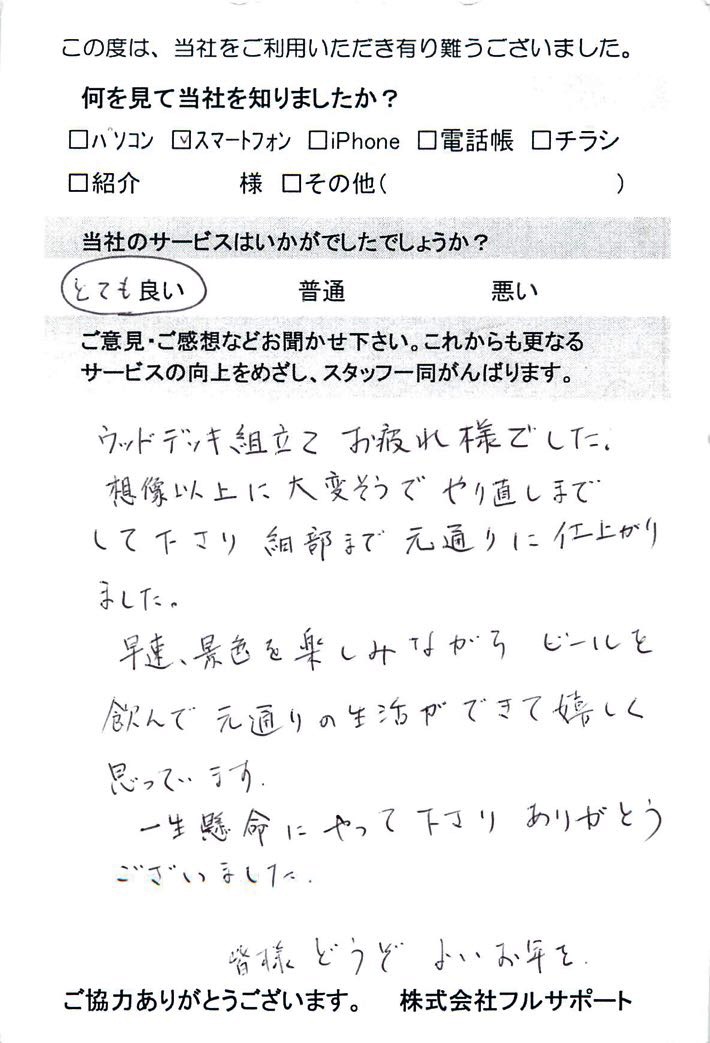 この度は、当社をご利用いただき有り難うございました。
何を見て当社を知りましたか？
□パソコン ☑スマートフォン □iPhone □電話帳 □チラシ
□紹介 様 □その他( )
当社のサービスはいかがでしたでしょうか？
とても良い 普通 悪い
ご意見・ご感想などお聞かせ下さい。これからも更なる
サービスの向上をめざし、スタッフ一同がんばります。
ウッドデッキ組立て お疲れ様でした。
想像以上に大変そうで やり直しまで
して下さり 細部まで 元通りに仕上がり
ました。
早速、景色を楽しみながら ビールを
飲んで 元通りの生活ができて嬉しく
思っています.
一生懸命にやって下さり ありがとう
ございました.
皆様 どうぞ よいお年を.
ご協力ありがとうございます。 株式会社フルサポート